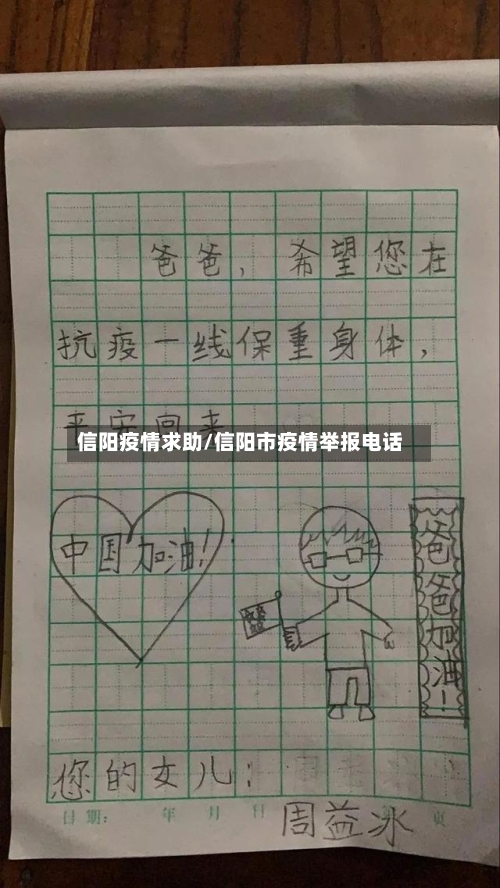 爸爸，希望您在
抗疫一线保重身体，
平安回来
信阳疫情求助/信阳市疫情举报电话
中国加油！
爸爸加油！
您的女儿：
周益冰
日期： 年 月 日 页